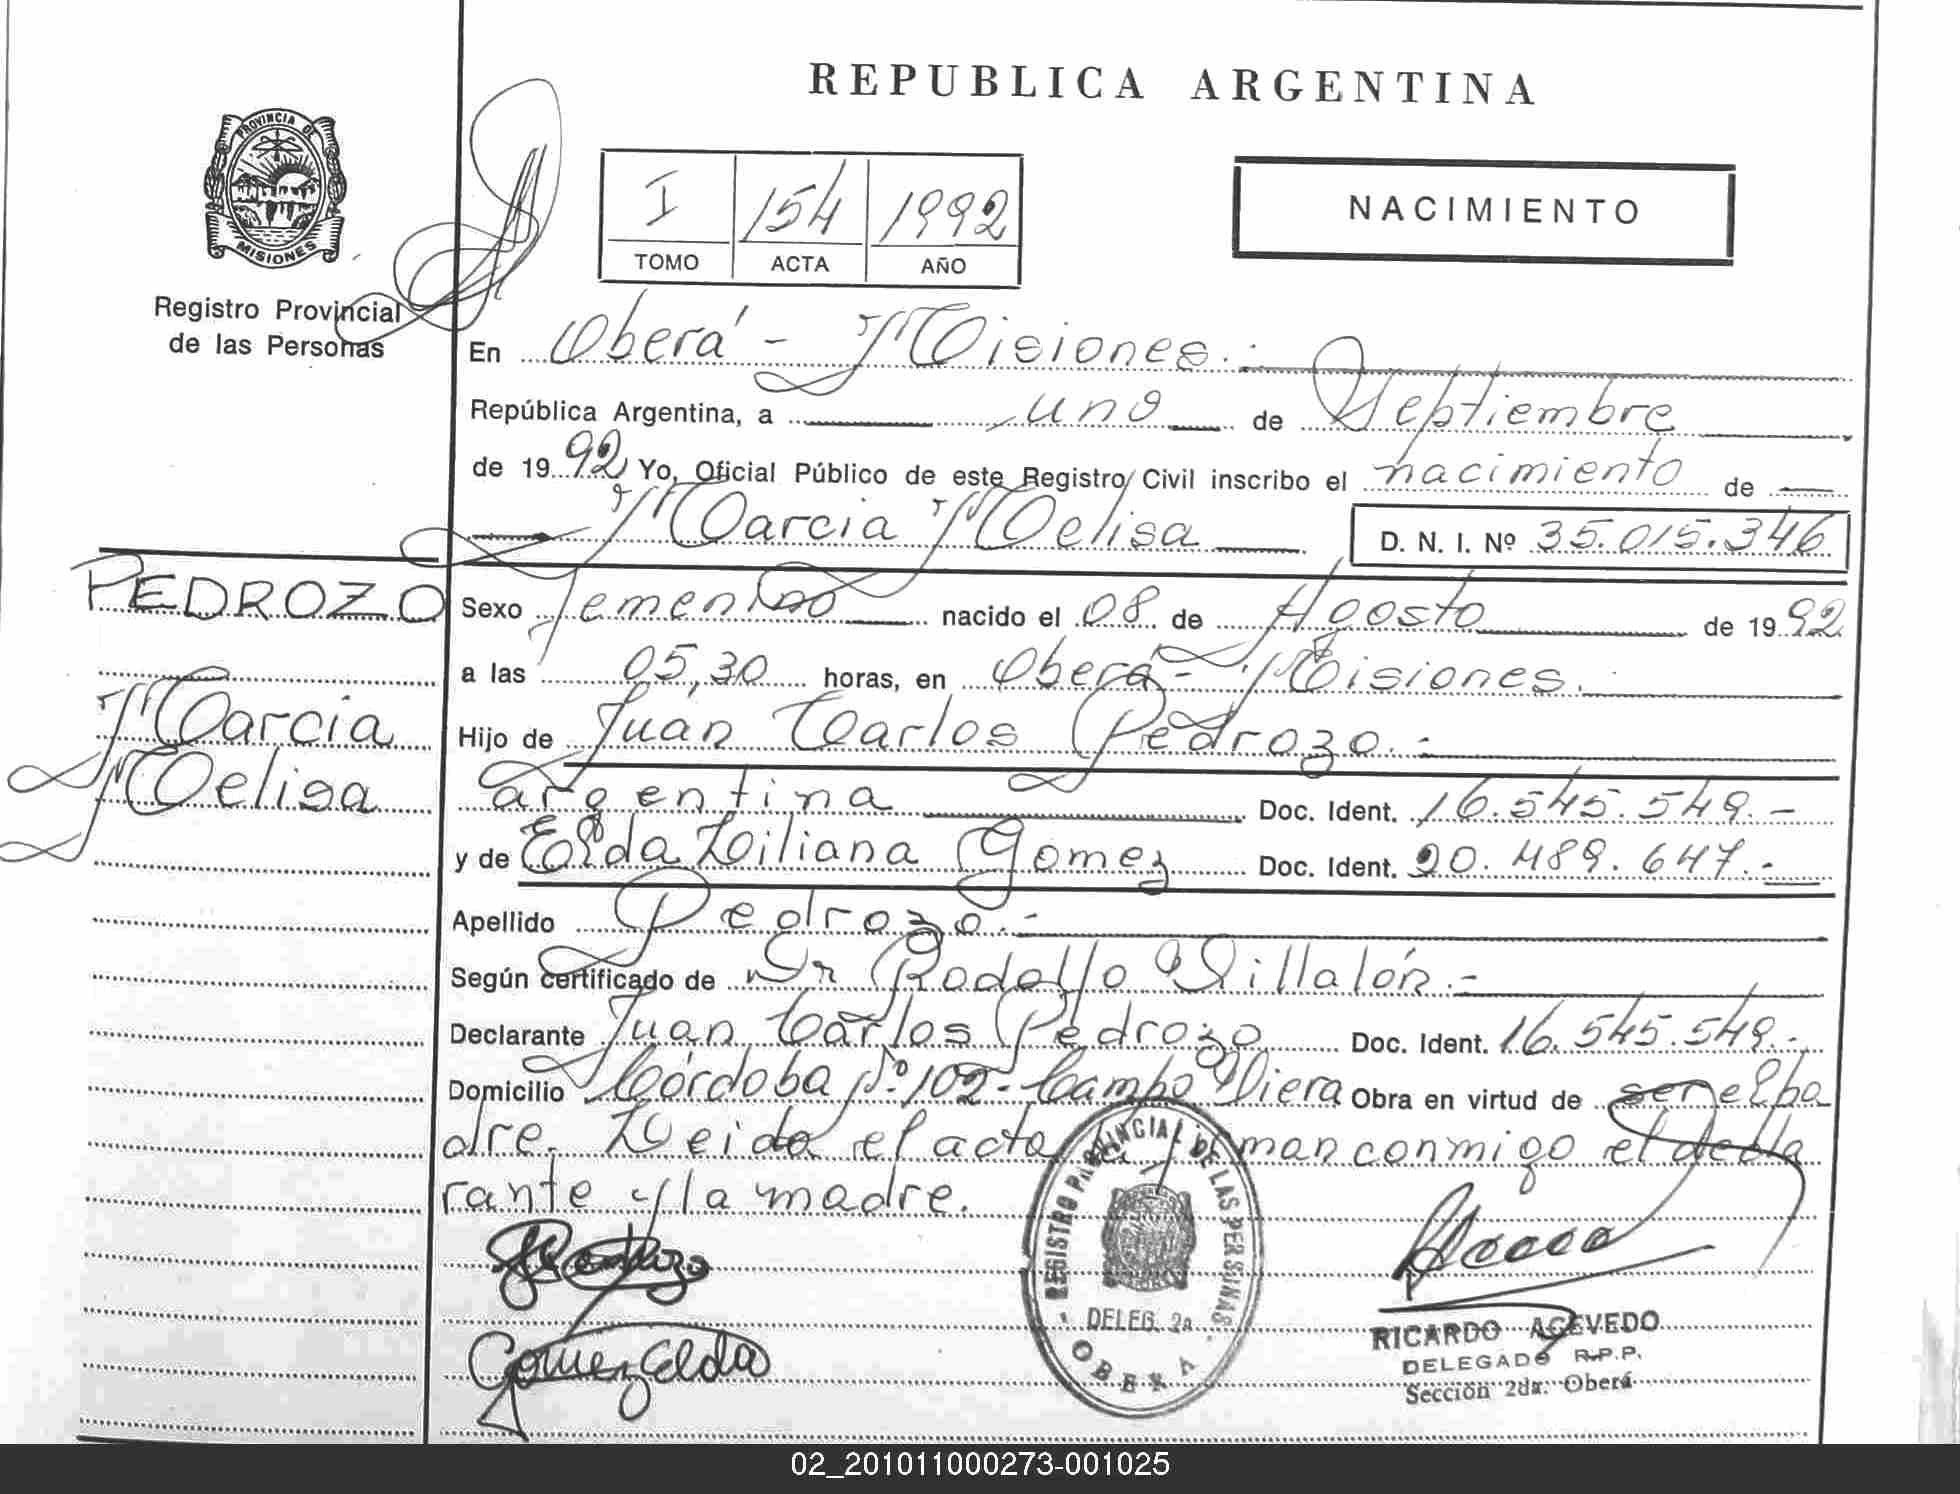 REPUBLICA ARGENTINA
PROVINCIA DE
MISIONES
Registro Provincial
de las Personas
I 154 1992
TOMO ACTA AÑO
NACIMIENTO
En Oberá - Misiones.
República Argentina, a uno de Septiembre
de 1992 Yo, Oficial Público de este Registro Civil inscribo el nacimiento de
Marcia Melisa D. N. I. Nº 35.015.346
PEDROZO
Marcia
Melisa
Sexo femenino nacido el 08 de Agosto de 1992
a las 05,30 horas, en Oberá - Misiones.
Hijo de Juan Carlos Pedrozo.-
argentina Doc. Ident. 16.545.549.-
y de Elda Liliana Gomez Doc. Ident. 20.489.647.-
Apellido Pedrozo.-
Según certificado de Dr Rodolfo Villalón.-
Declarante Juan Carlos Pedrozo Doc. Ident. 16.545.549.-
Domicilio Córdoba Nº 102- Campo Viera Obra en virtud de ser el pa
dre. Leida el acta firman conmigo el decla
rante y la madre.
Pedrozo
Gomez Elda
REGISTRO PROVINCIAL DE LAS PERSONAS
DELEG. 2a
OBERA
RICARDO ACEVEDO
DELEGADO R.P.P.
Sección 2da. Oberá
02_201011000273-001025